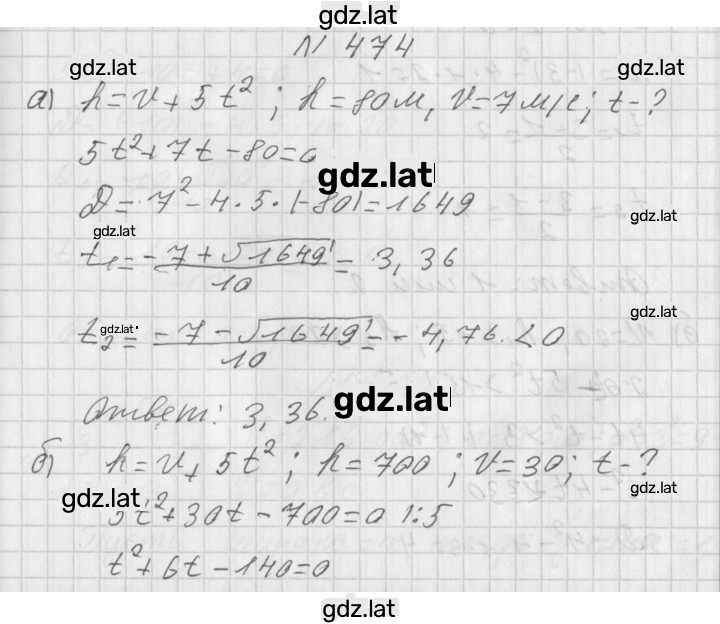 gdz.lat
N 474
gdz.lat gdz.lat
а) h=v+5t²; h=80м, v=7м/с; t-?
5t²+7t-80=0
gdz.lat
D=7²-4·5·(-80)=1649
gdz.lat gdz.lat
t₁=(-7+√1649)/10=3,36
gdz.lat gdz.lat
t₂=(-7-√1649)/10=-4,76<0
Ответ: 3,36.
gdz.lat
б) h=v+5t²; h=700; v=30; t-?
gdz.lat gdz.lat
5t²+30t-700=0 |:5
t²+6t-140=0
gdz.lat